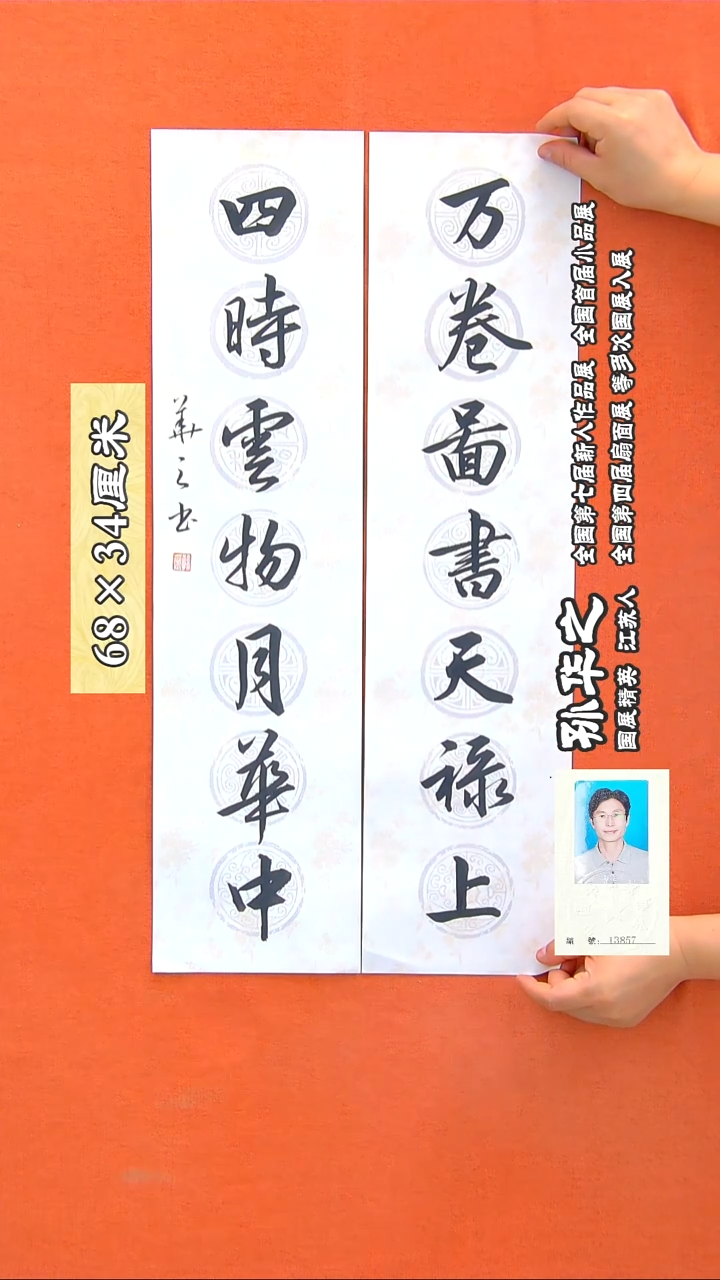 万卷啚書天禄上
四時雲物月華中
華之书
68×34厘米
孙华之
国展精英 江苏人
全国第七届新人作品展 全国首届小品展
全国第四届扇面展 等多次国展入展
編 號: 13857